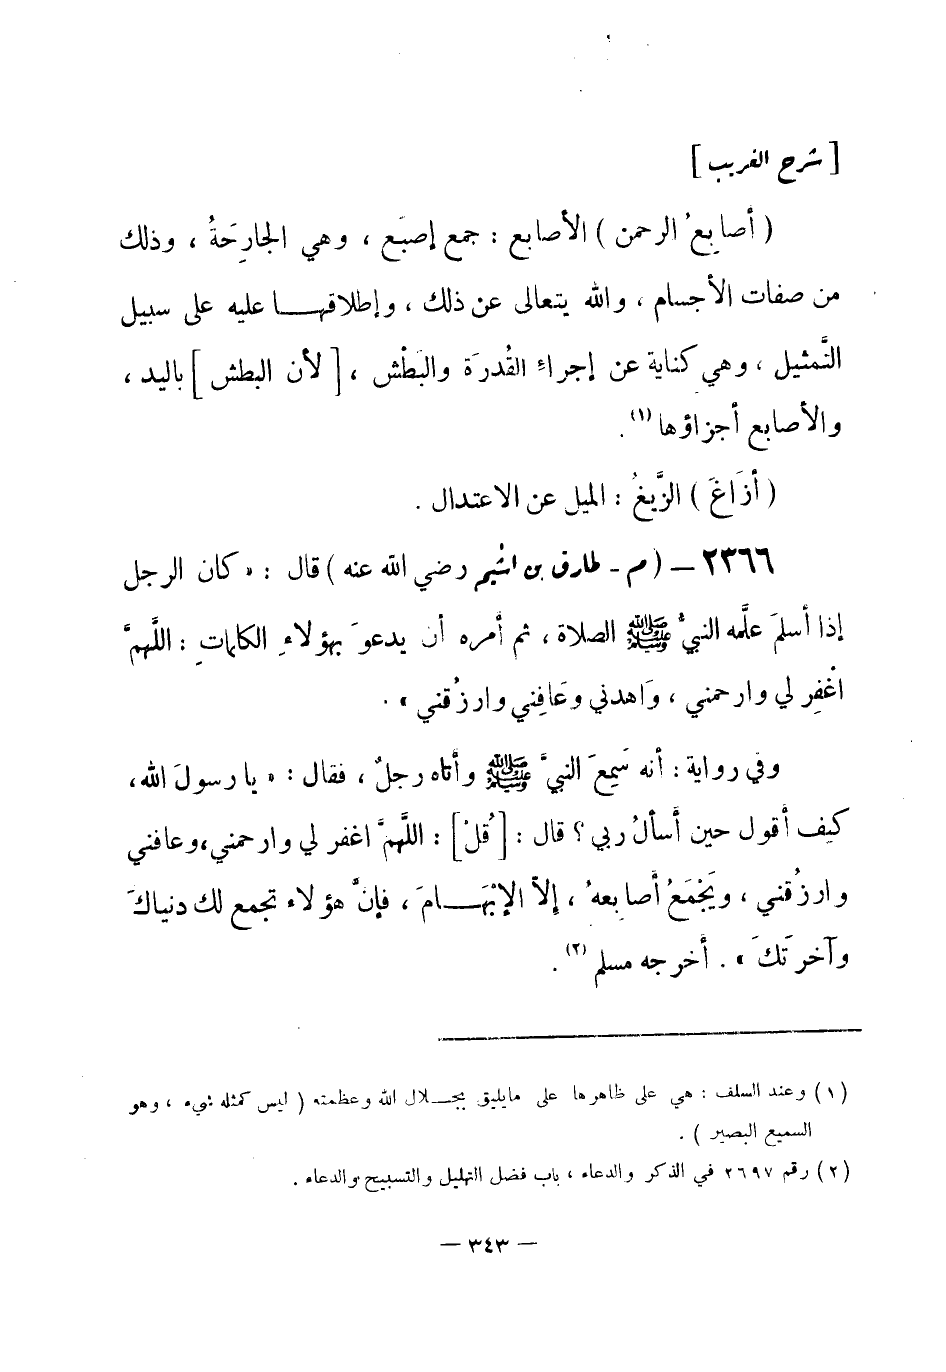 [ شرح الغريب ]
( أصابِعُ الرحمن ) الأصابع : جمع إصبَع ، وهي الجارِحَةُ ، وذلك
من صفات الأجسام ، والله يتعالى عن ذلك ، وإطلاقهـا عليه على سبيل
التَّمثيل ، وهي كناية عن إجراءِ القُدرَة والبَطْش ، [ لأن البطش ] باليد ،
والأصابع أجزاؤها (١) .
( أزَاغَ ) الزَّيغُ : الميل عن الاعتدال .
٢٣٦٦ — ( م - طارق بن أشيم رضي الله عنه ) قال : « كان الرجل
إذا أسلمَ علَّمه النبيُّ ﷺ الصلاة ، ثم أمره أن يدعوَ بهؤلاءِ الكلماتِ : اللَّهمَّ
اغْفِر لي وارحمني ، وَاهدني وعَافِني وارزُقني » .
وفي رواية : أنه سَمِعَ النبيَّ ﷺ وأتاه رجلٌ ، فقال : « يا رسولَ الله ،
كيف أقول حين أسألُ ربي ؟ قال : [ قُلْ ] : اللَّهمَّ اغفر لي وارحمني، وعافني
وارزُقني ، ويَجْمَعُ أصابِعهُ ، إلاَّ الإبْهَـامَ ، فإنَّ هؤلاء تجمع لك دنياكَ
وآخرتَكَ » . أخرجه مسلم (٢) .
(١) وعند السلف : هي على ظاهرها على مايليق بجـلال الله وعظمته ( ليس كمثله شيء ، وهو
السميع البصير ) .
(٢) رقم ٢٦٩٧ في الذكر والدعاء ، باب فضل التهليل والتسبيح والدعاء .
— ٣٤٣ —